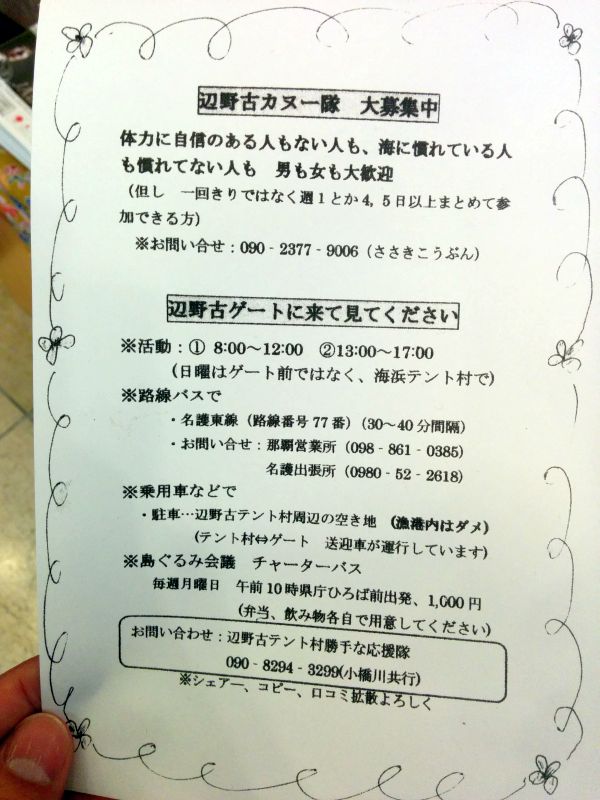 辺野古カヌー隊　大募集中
体力に自信のある人もない人も、海に慣れている人
も慣れてない人も　男も女も大歓迎
（但し　一回きりではなく週１とか4, 5日以上まとめて参
加できる方）
※お問い合せ：090‐2377‐9006（ささきこうぶん）
辺野古ゲートに来て見てください
※活動：① 8:00～12:00　②13:00～17:00
（日曜はゲート前ではなく、海浜テント村で）
※路線バスで
・名護東線（路線番号77番）（30～40分間隔）
・お問い合せ：那覇営業所（098‐861‐0385）
名護出張所（0980‐52‐2618）
※乗用車などで
・駐車…辺野古テント村周辺の空き地　（漁港内はダメ）
（テント村⇔ゲート　送迎車が運行しています）
※島ぐるみ会議　チャーターバス
毎週月曜日　午前10時県庁ひろば前出発、1,000円
（弁当、飲み物各自で用意してください）
お問い合わせ：辺野古テント村勝手な応援隊
090‐8294‐3299(小橋川共行)
※シェアー、コピー、口コミ拡散よろしく